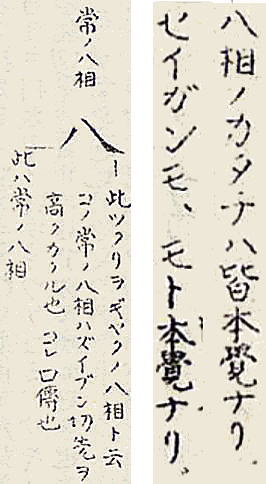 八相ノカタチハ皆本覺ナリ
セイガンモ、モト本覺ナリ。
常ノ八相
八
此ツクリヲギャクノ八相ト云
コノ常ノ八相ハズイブン切先ヲ
高クカクル也 コレ口傳也
此ハ常ノ八相